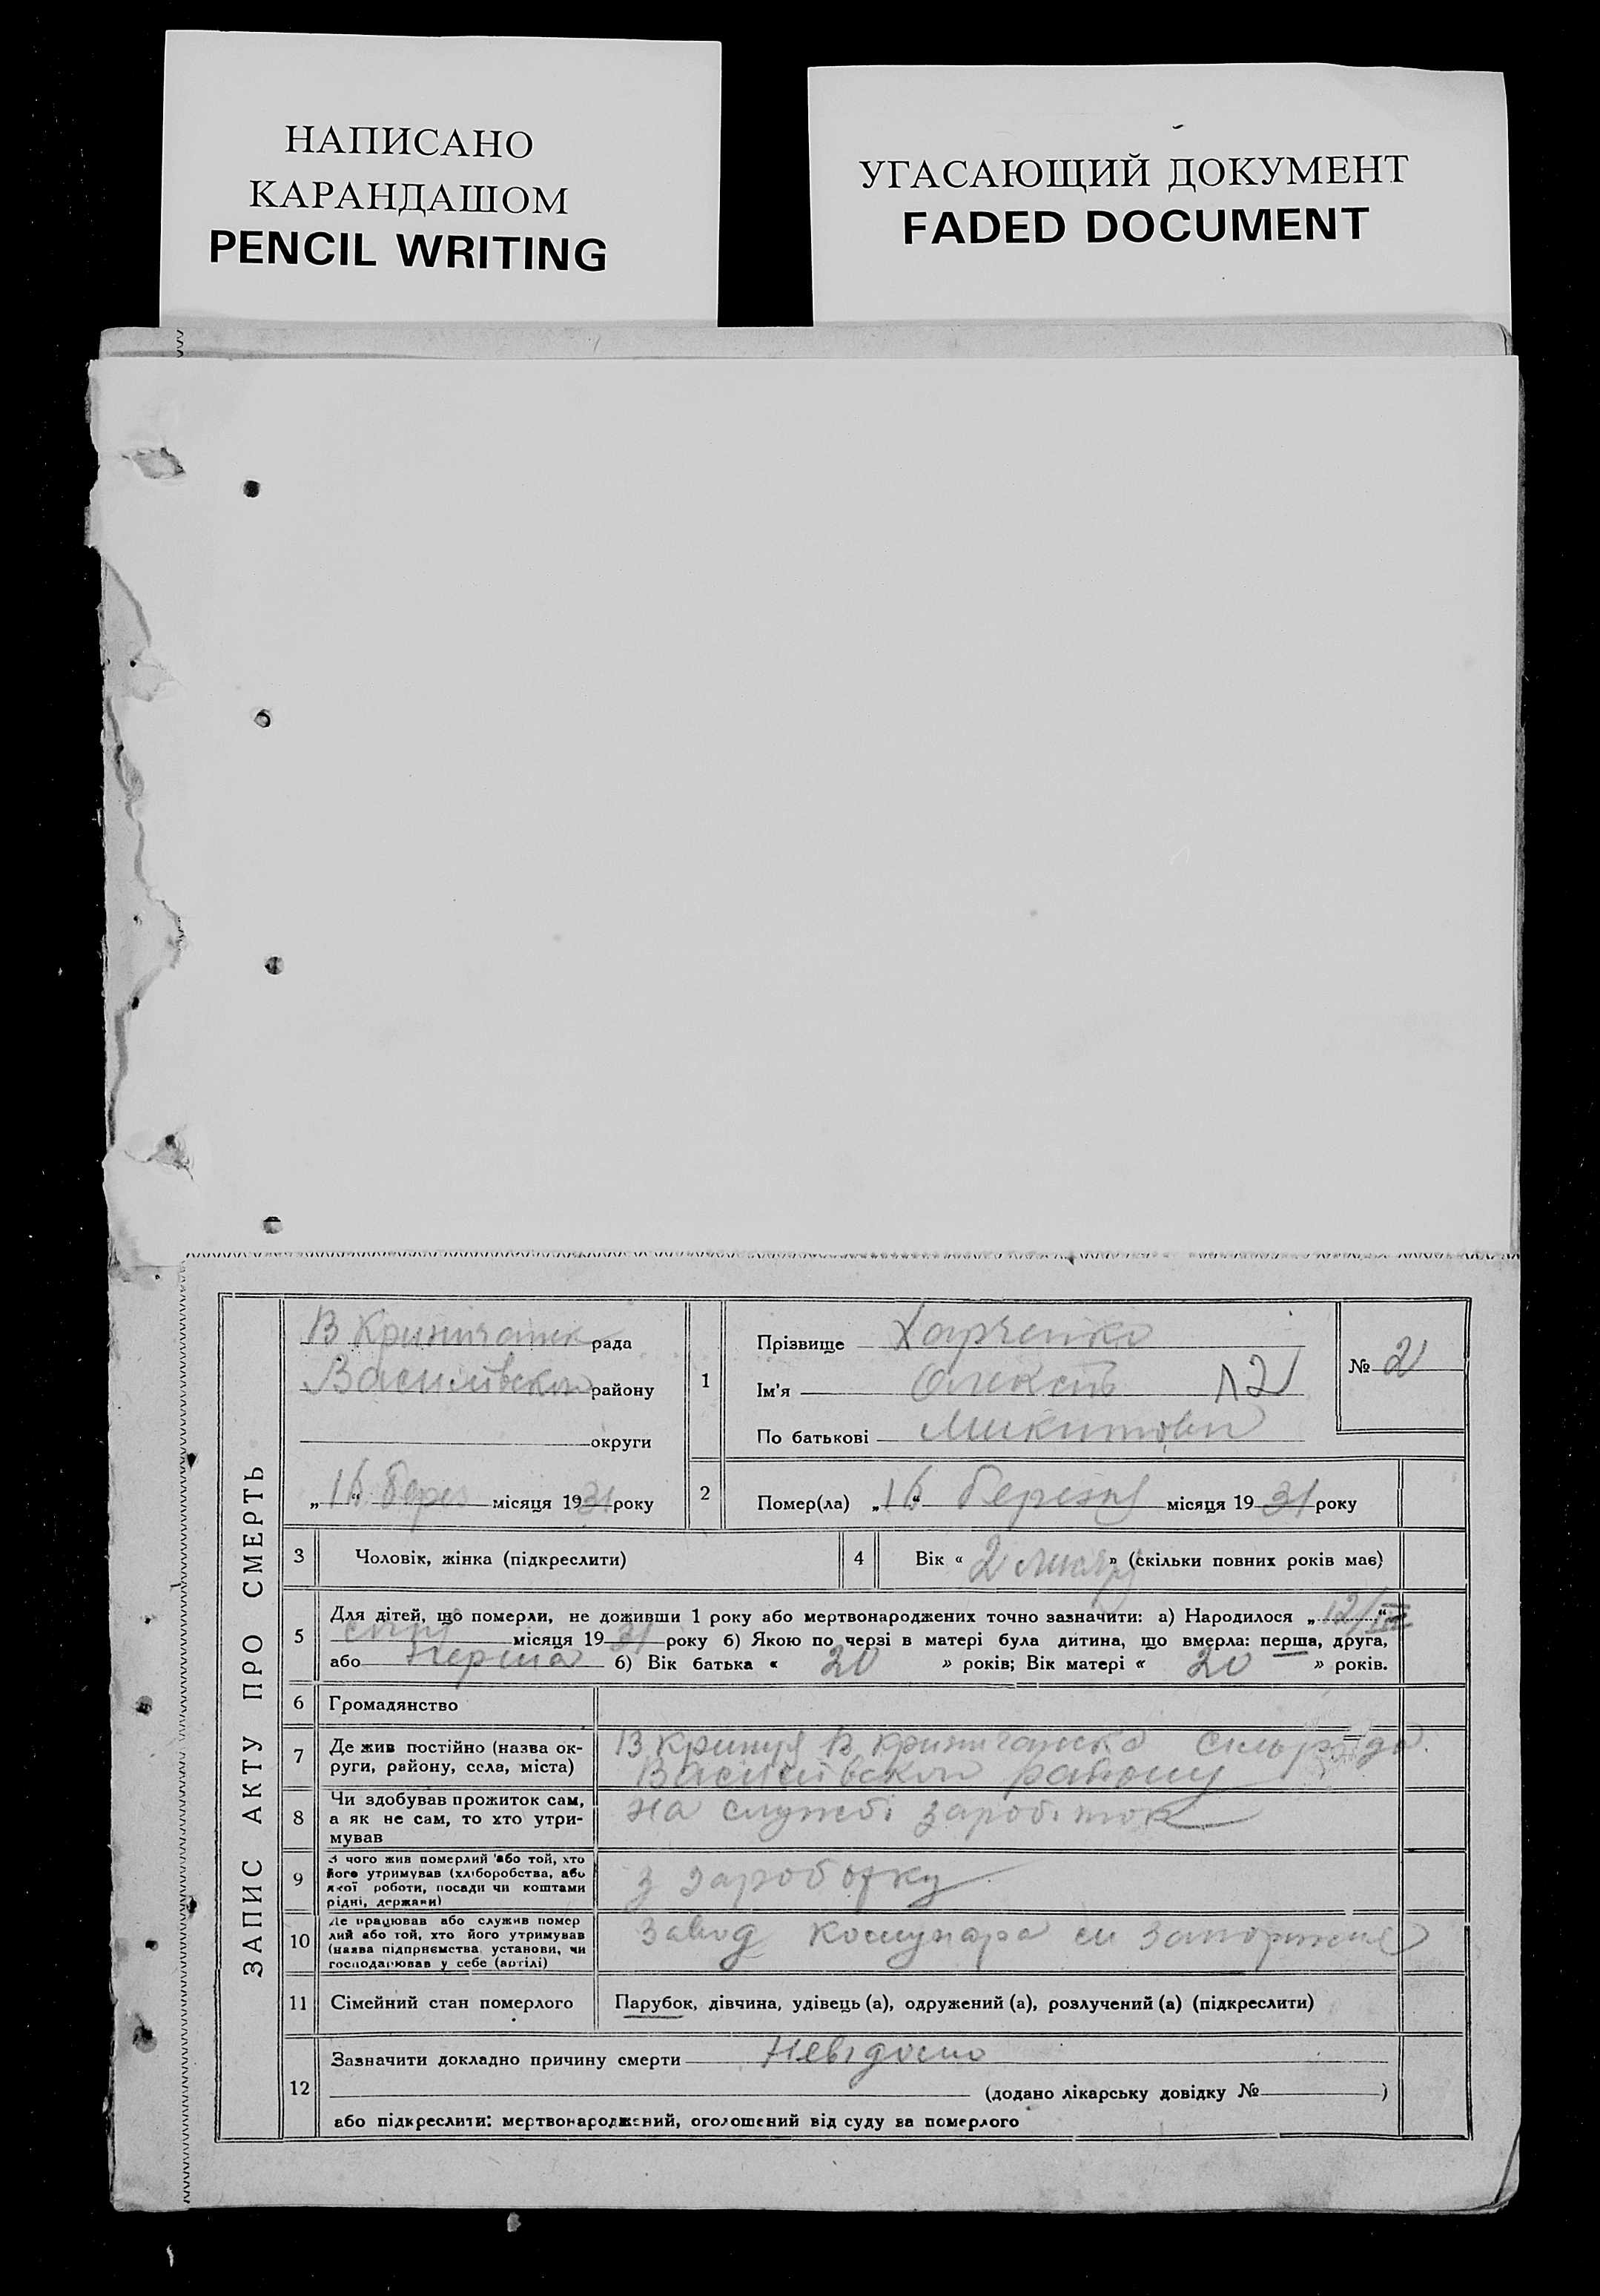 НАПИСАНО
КАРАНДАШОМ
PENCIL WRITING
УГАСАЮЩИЙ ДОКУМЕНТ
FADED DOCUMENT
ЗАПИС АКТУ ПРО СМЕРТЬ
В Криничанск рада
Василівского району
округи
„16“ берез місяця 1931 року
1
Прізвище Харченко
Ім'я Олексій 12
По батькові Микитови
№ 2
2
Помер(ла) „16“ березня місяця 1931 року
3 Чоловік, жінка (підкреслити)
4 Вік « 2 » (скільки повних років має)
5 Для дітей, що померли, не доживши 1 року або мертвонароджених точно зазначити: а) Народилося „12/III“
січня місяця 1931 року б) Якою по черзі в матері була дитина, що вмерла: перша, друга,
або перша б) Вік батька « 20 » років; Вік матері « 20 » років.
6 Громадянство
7 Де жив постійно (назва ок-
руги, району, села, міста)
В Криниця В Криничанска сільрада
Василівского району
8 Чи здобував прожиток сам,
а як не сам, то хто утри-
мував
на службі заробіток
9 З чого жив померлий або той, хто
його утримував (хліборобства, або
якої роботи, посади чи коштами
рідні, держави)
з зароботку
10 Де працював або служив помер
лий або той, хто його утримував
(назва підприємства, установи, чи
господарював у себе (артілі)
Завод Комунара м Запоріжжя
11 Сімейний стан померлого
Парубок, дівчина, удівець (а), одружений (а), розлучений (а) (підкреслити)
12 Зазначити докладно причину смерти Невідомо
(додано лікарську довідку № )
або підкреслити: мертвонароджений, оголошений від суду за померлого